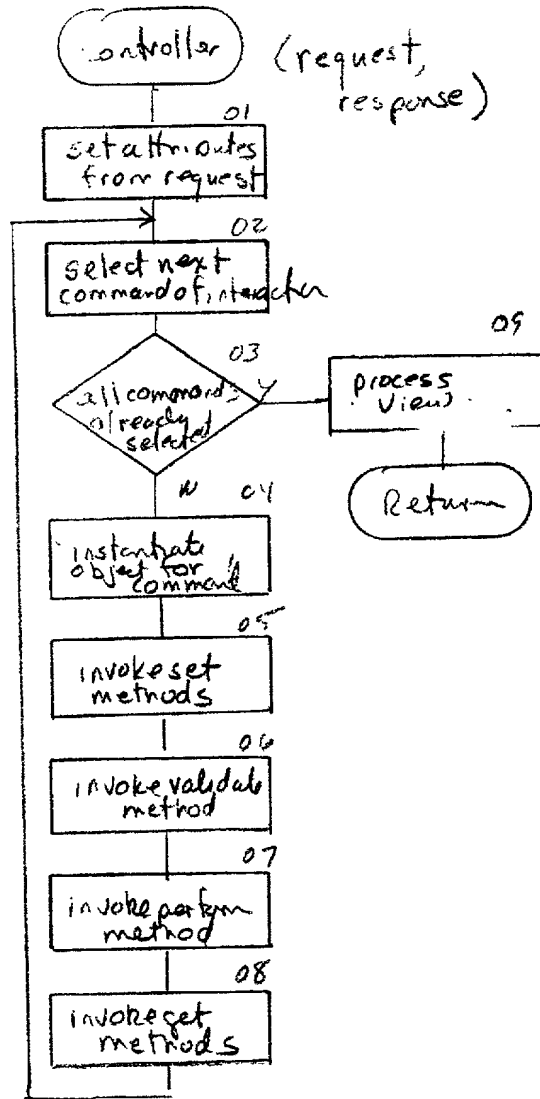 Controller
(request,
response)
01
set attributes
from request
02
select next
command of interaction
03
all commands
already
selected
Y
N
09
process
View
Return
04
instantiate
object for
command
05
invoke set
methods
06
invoke validate
method
07
invoke perform
method
08
invoke get
methods